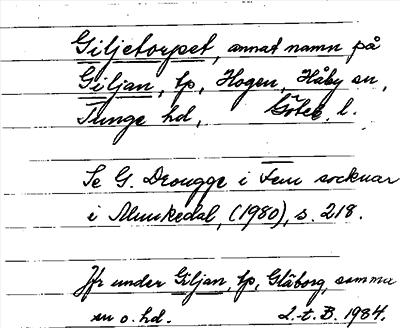 Giljetorpet, annat namn på
Giljan, tp, Hogen, Håby sn,
Tunge hd, Göteb. l.
Se G. Drougge i Fem socknar
i Munkedal, (1980), s. 218.
Jfr under Giljan, tp, Glåborg, samma
sn o. hd. L.t.B. 1984.